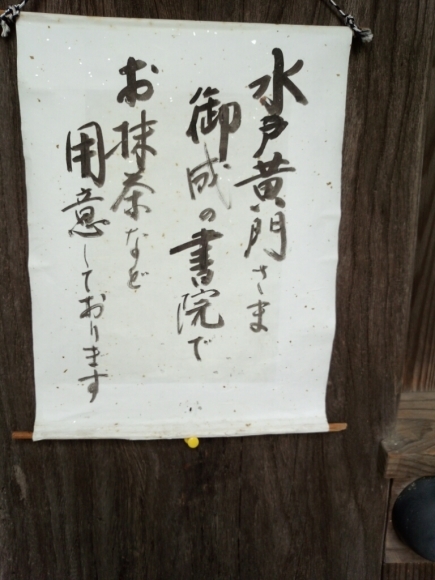 水戸黄門さま
御成の書院で
お抹茶など
用意しております